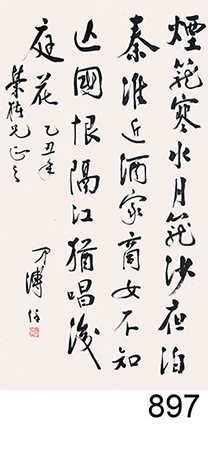 煙籠寒水月籠沙夜泊
秦淮近酒家商女不知
亡國恨隔江猶唱後
庭花 乙丑年
兄正之
溥
897